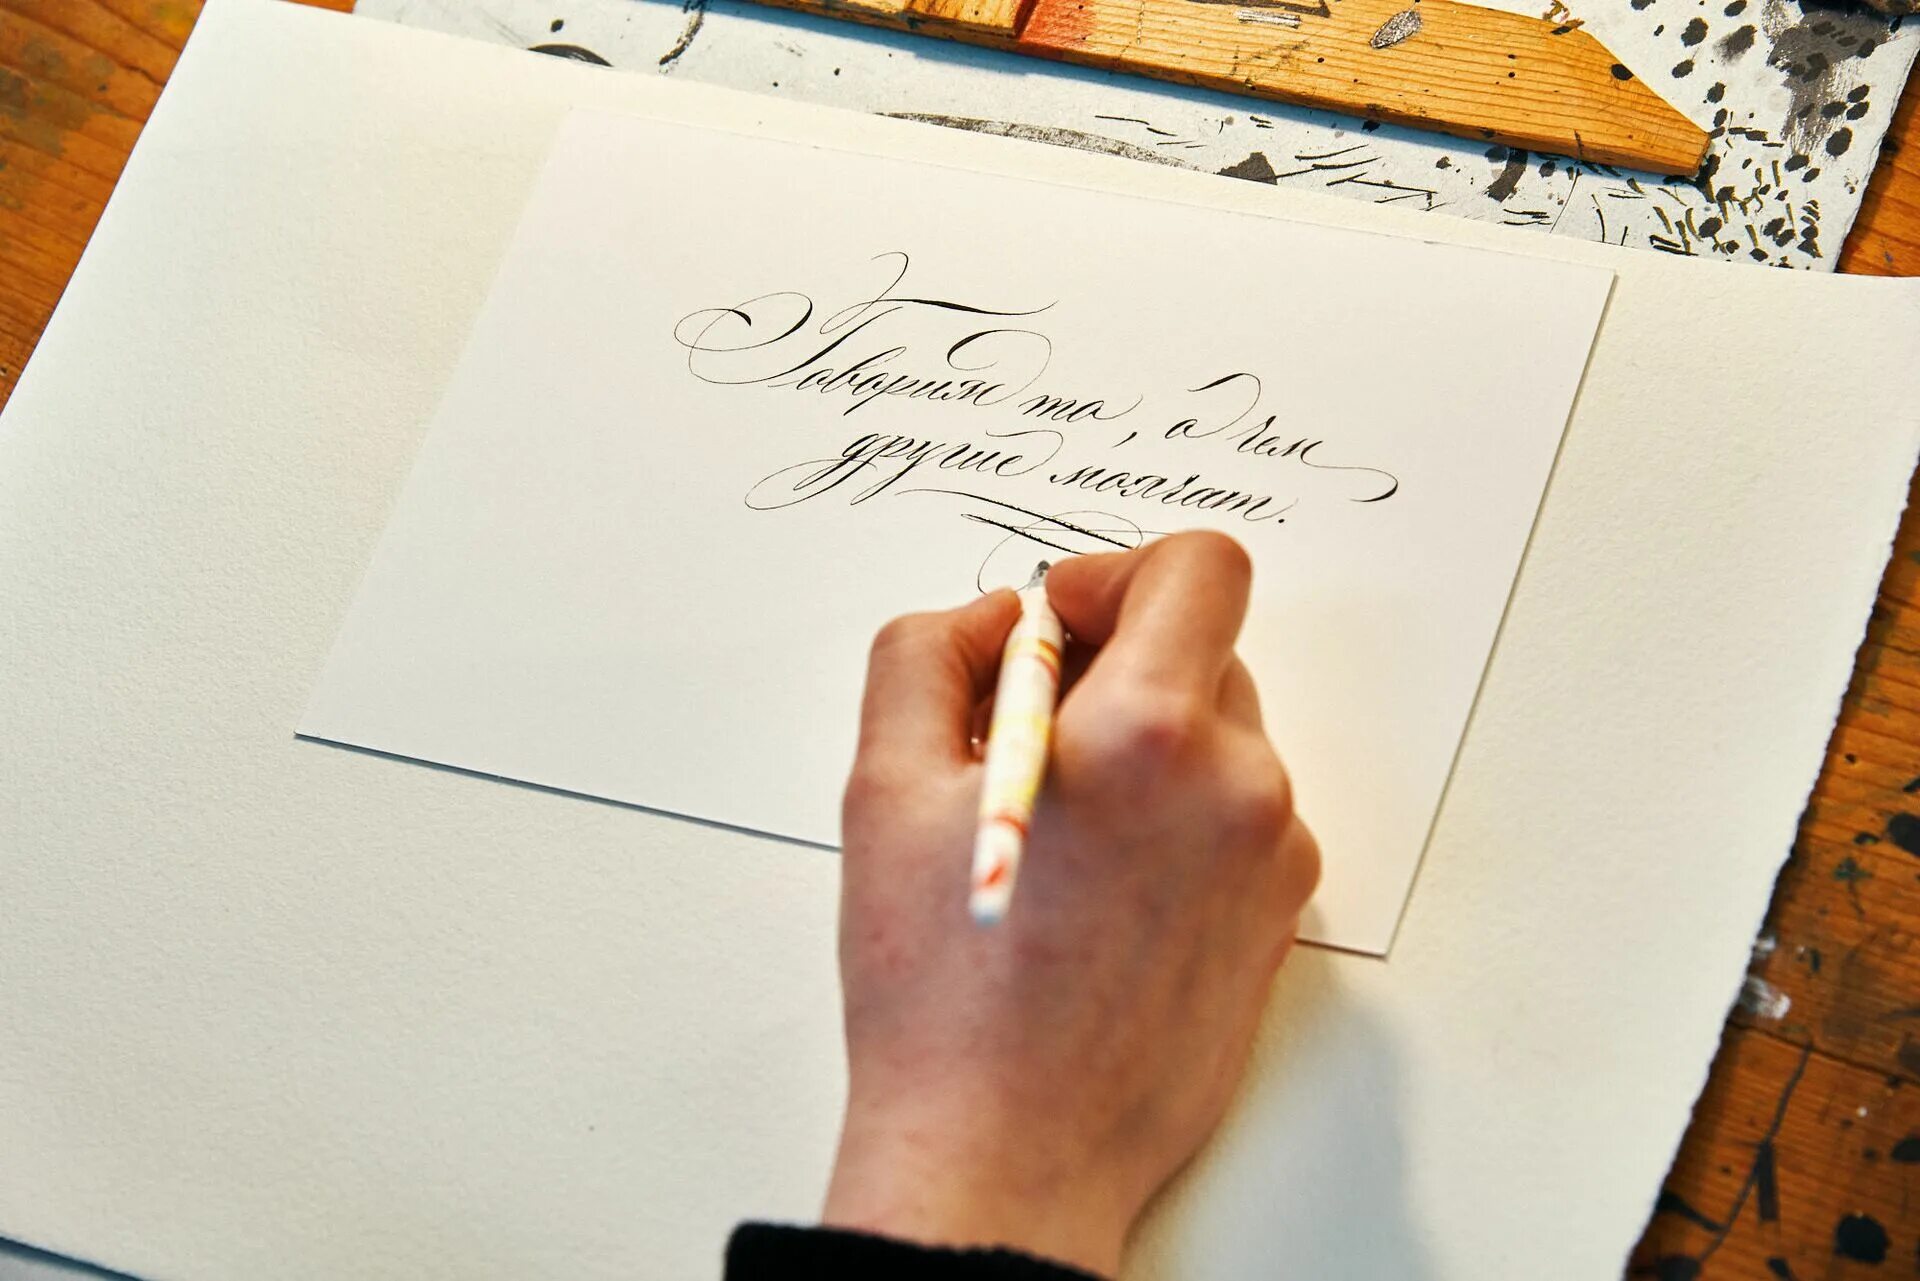 Говорим то, о чем
другие молчат.